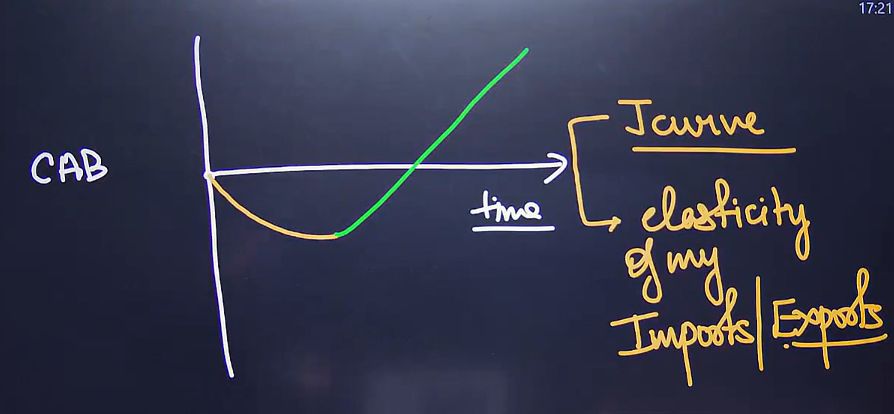 17:21
CAB
time
J curve
elasticity
of my
Imports/Exports